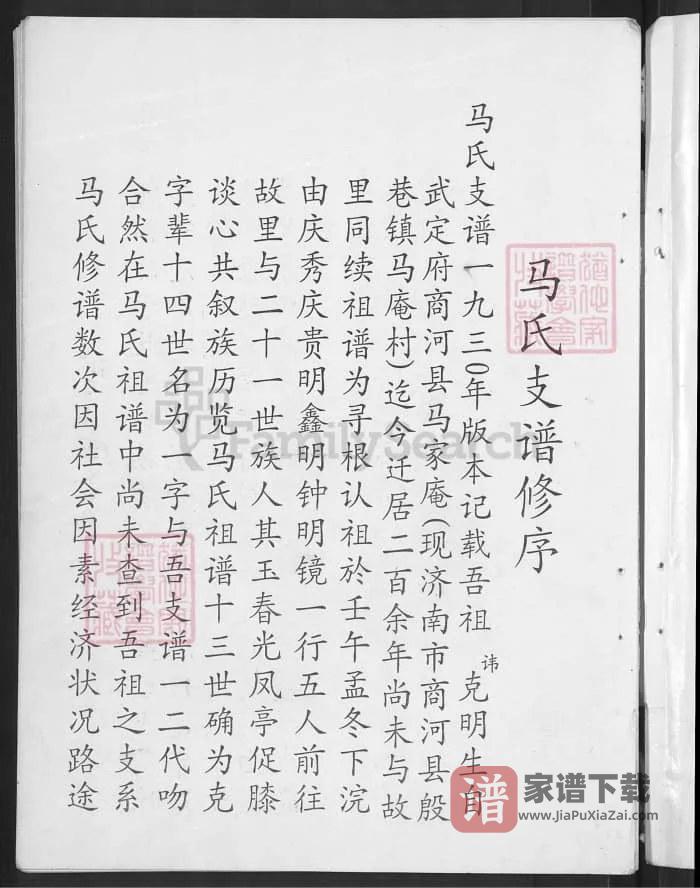 马氏支谱修序
马氏支谱一九三0年版本记载吾祖讳克明生自
武定府商河县马家庵(现济南市商河县殷
巷镇马庵村)迄今迁居二百余年尚未与故
里同续祖谱为寻根认祖於壬午孟冬下浣
由庆秀庆贵明鑫明钟明镜一行五人前往
故里与二十一世族人其玉春光凤亭促膝
谈心共叙族历览马氏祖谱十三世确为克
字辈十四世名为一字与吾支谱一二代吻
合然在马氏祖谱中尚未查到吾祖之支系
马氏修谱数次因社会因素经济状况路途
FamilySearch
谱 家谱下载
www.JiaPuXiaZai.com